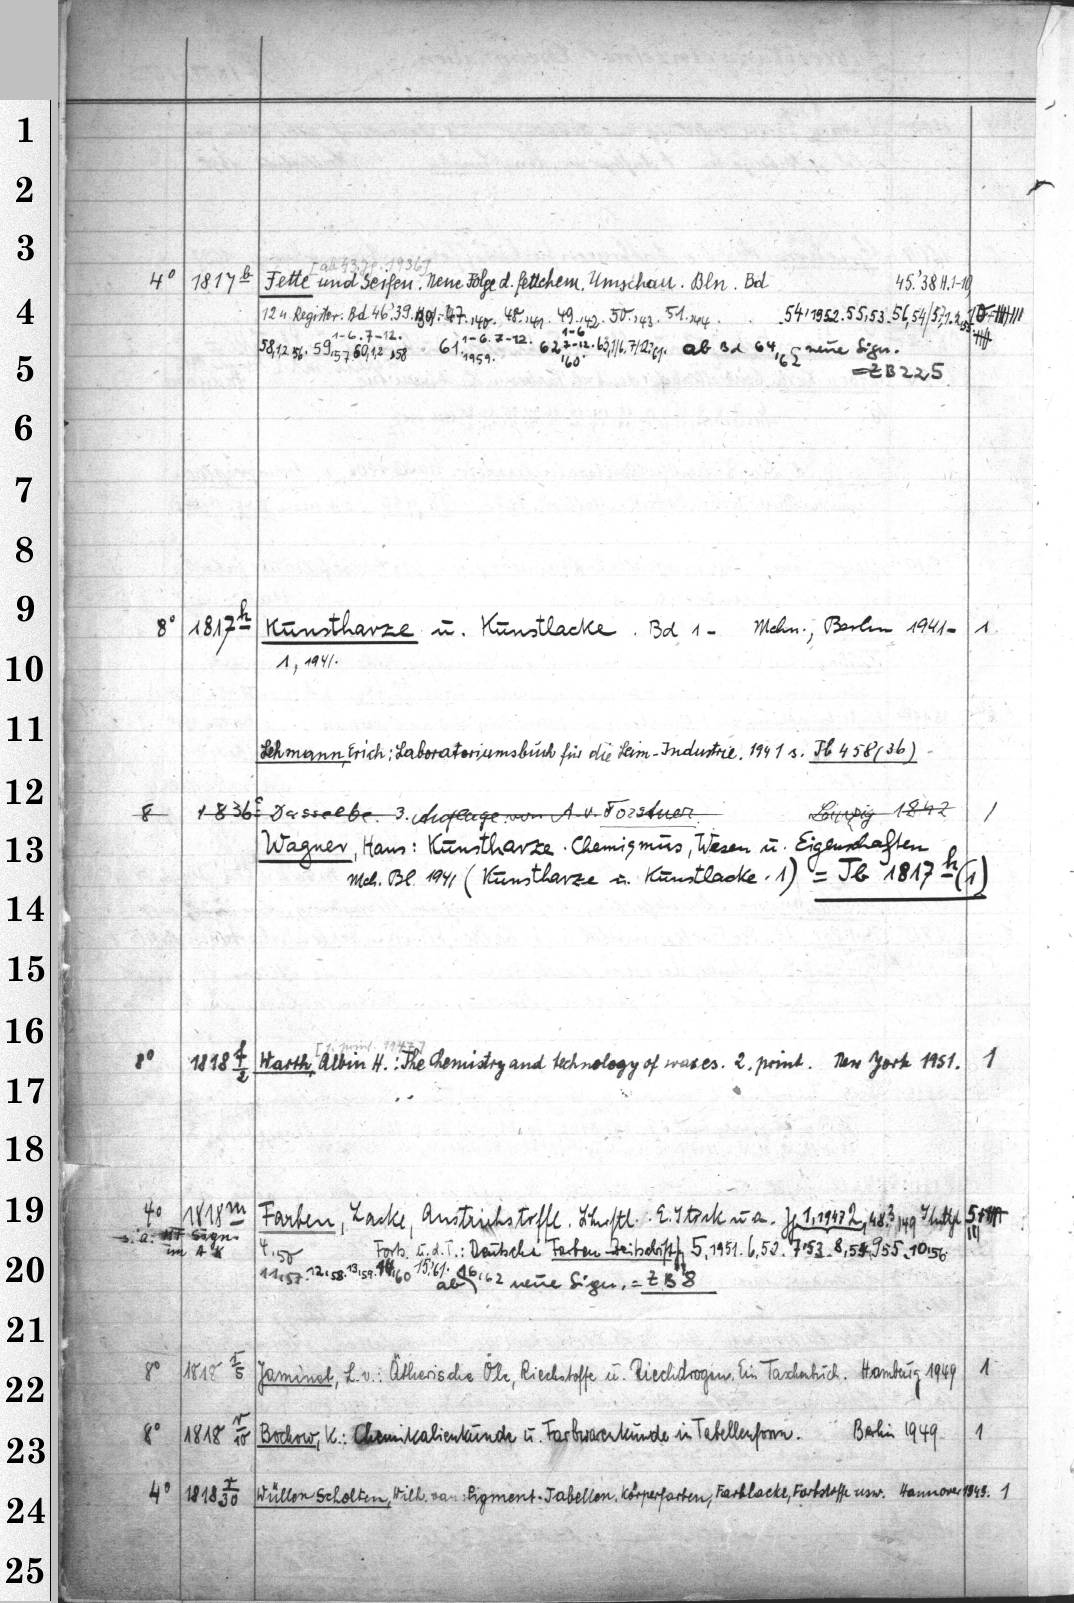 1
2
3
[ab 43. Jg. 1936]
4° 1817 b Fette und Seifen. Neue Folge d. fettchem. Umschau. Bln. Bd 45.'38 H.1-10
4
12 u. Register. Bd 46'39. 47,'40. 48,'41. 49,'42. 50,'43. 51,'44. 54,1952. 55,53. 56,54/57,1.2,'55
1-6. 7-12. 1-6. 7-12. 1-6
58,12 56. 59,'57 60,12,'58 61, 1959. 62 7-12. '60 63,1/6.7/12,'61. ab Bd 64,'62 neue Sign.
5
= ZB 225
6
7
8
9
8° 1817 h Kunstharze u. Kunstlacke. Bd 1- Mchn., Berlin 1941- 1
10
1, 1941.
11
Lehmann, Erich: Laboratoriumsbuch für die Leim-Industrie. 1941 s. Jb 458(36)
12
8 1836 c Dasselbe. 3. Auflage von A. v. Forstner. Leipzig 1842 1
13
Wagner, Hans: Kunstharze. Chemismus, Wesen u. Eigenschaften
Mch. Bl. 1941 (Kunstharze u. Kunstlacke. 1) = Jb 1817 h (1)
14
15
16
[1. print. 1947]
8° 1818 f/2 Warth, Albin H.: The Chemistry and technology of waxes. 2. print. New York 1951. 1
17
18
19
4° 1818 m Farben, Lacke, Anstrichstoffe. Schriftl.: E. Stock u. a. Jg 1,1947 2,48. 3,'49
s. a. NF Sign. 4,50 Forts. u. d. T.: Deutsche Farben-Zeitschrift 5,1951. 6,52. 7'53. 8,54. 9'55. 10,56
20
11,57. 12,58. 13,59. 14,60 15,'61. ab 16,'62 neue Sign. = ZB 8
21
8° 1818 r/5 Jaminet, L. v.: Ätherische Öle, Riechstoffe u. Riechdrogen. Ein Taschenbuch. Hamburg 1949 1
22
8° 1818 v/10 Bochow, K.: Chemikalienkunde u. Farbwarenkunde in Tabellenform. Berlin 1949 1
23
4° 1818 x/30 Wüllen Scholten, Wilh. van: Pigment-Tabellen. Körperfarben, Farblacke, Farbstoffe usw. Hannover 1949. 1
24
25